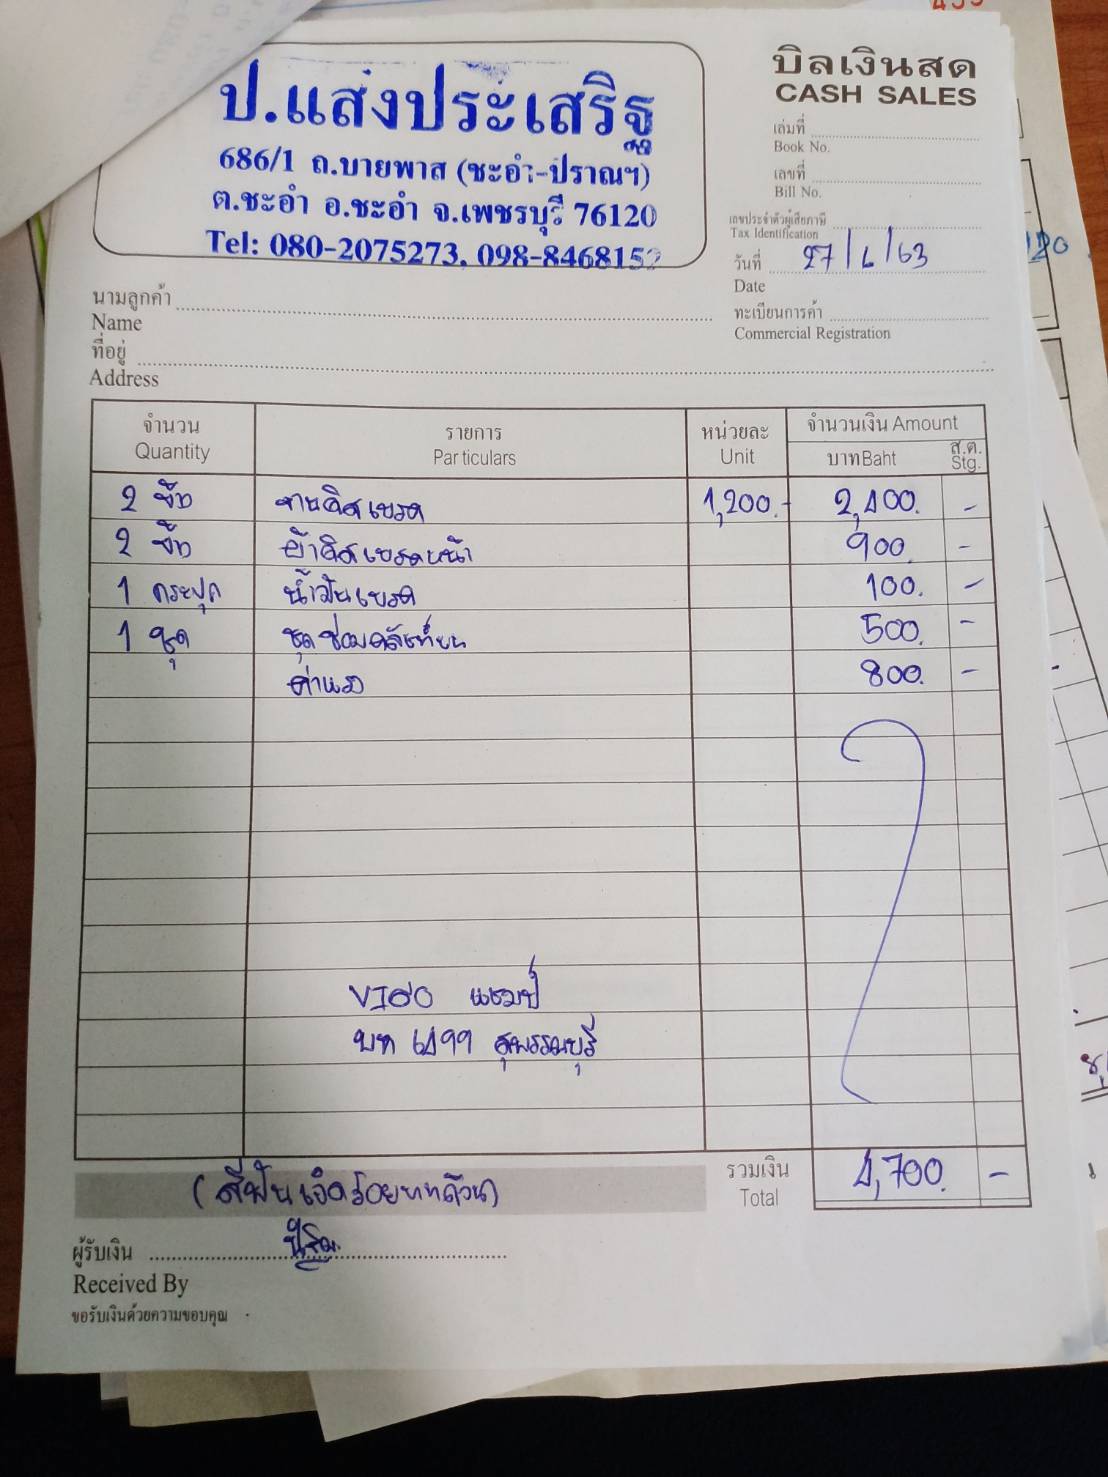 ป.แสงประเสริฐ
686/1 ถ.บายพาส (ชะอำ-ปราณฯ)
ต.ชะอำ อ.ชะอำ จ.เพชรบุรี 76120
Tel: 080-2075273, 098-8468152
บิลเงินสด
CASH SALES
เล่มที่
Book No.
เลขที่
Bill No.
เลขประจำตัวผู้เสียภาษี
Tax Identification
วันที่ 27/6/63
Date
ทะเบียนการค้า
Commercial Registration
นามลูกค้า
Name
ที่อยู่
Address
จำนวน รายการ หน่วยละ จำนวนเงิน Amount
Quantity Particulars Unit บาท Baht ส.ต. Stg.
2 ชิ้น จานดิสเบรค 1,200.- 2,400. -
2 ชิ้น ผ้าดิสเบรคหน้า 900. -
1 กระปุก น้ำมันเบรค 100. -
1 ชุด ชุดซ่อม 500. -
ค่าแรง 800. -
VIGO แชมป์
บท 6499 สุพรรณบุรี
(สี่พันเจ็ดร้อยบาทถ้วน)
รวมเงิน 4,700. -
Total
ผู้รับเงิน
Received By
ขอรับเงินด้วยความขอบคุณ